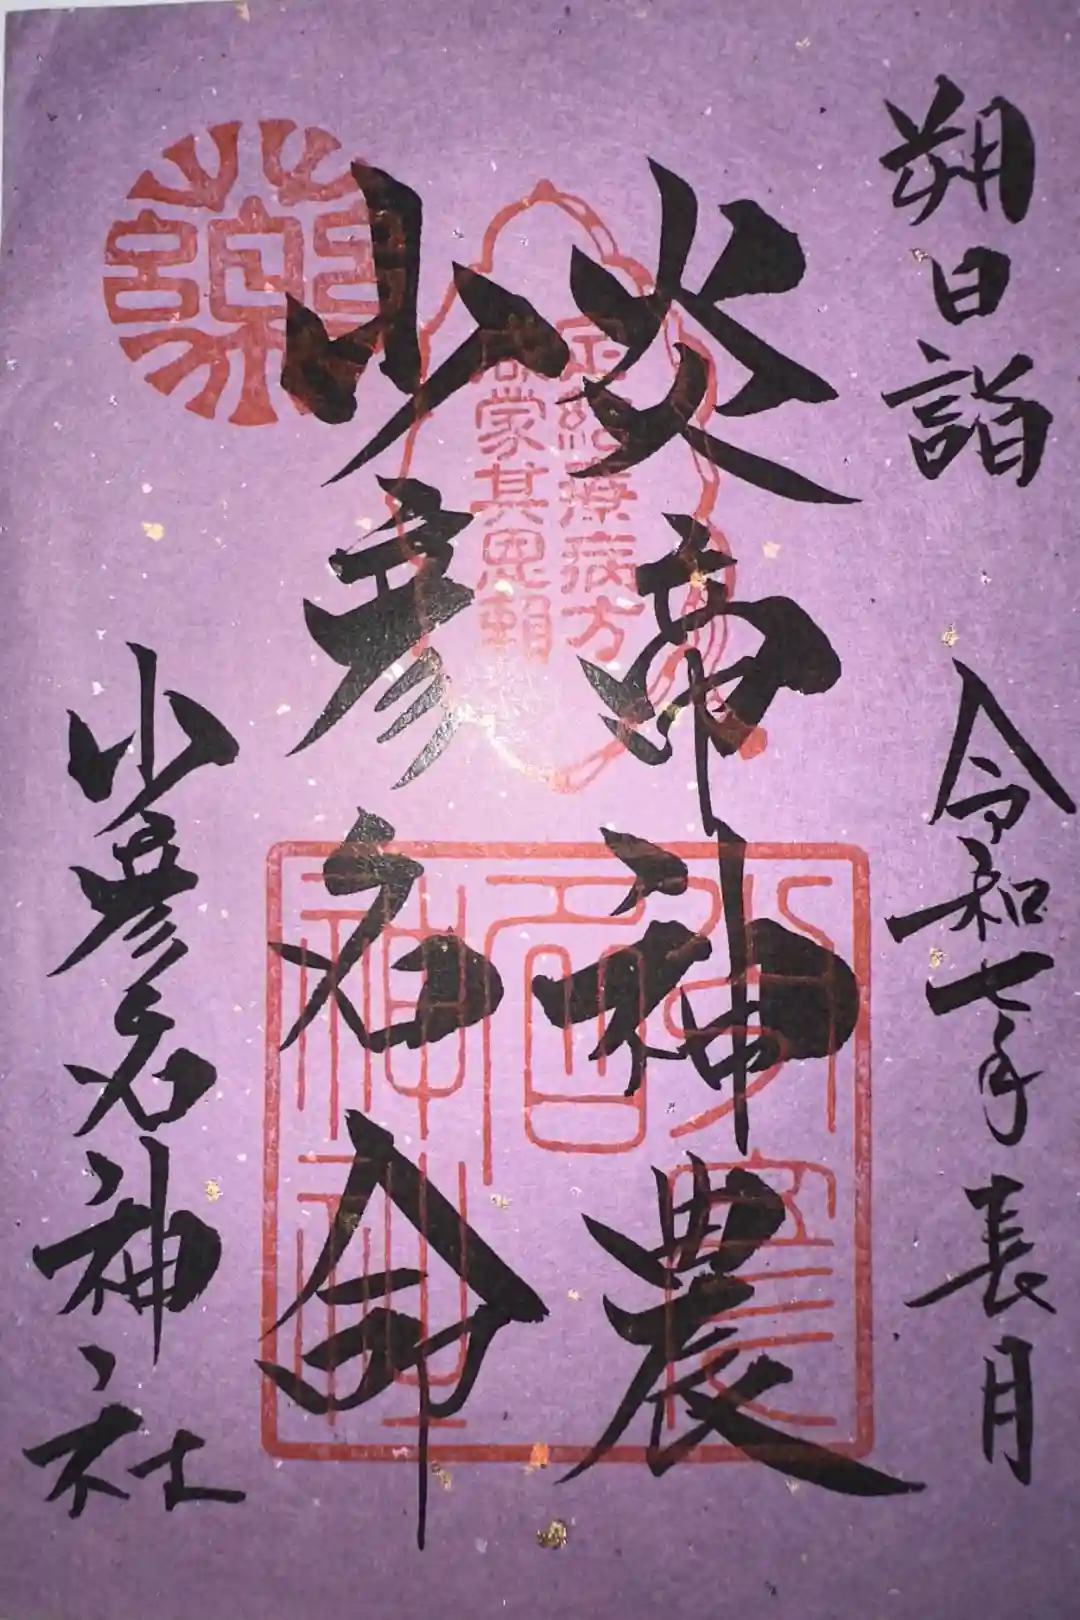 朔日詣
令和七年長月
炎帝神農
少彦名命
少彦名神社
薬
定給療病方
咸蒙其恩頼